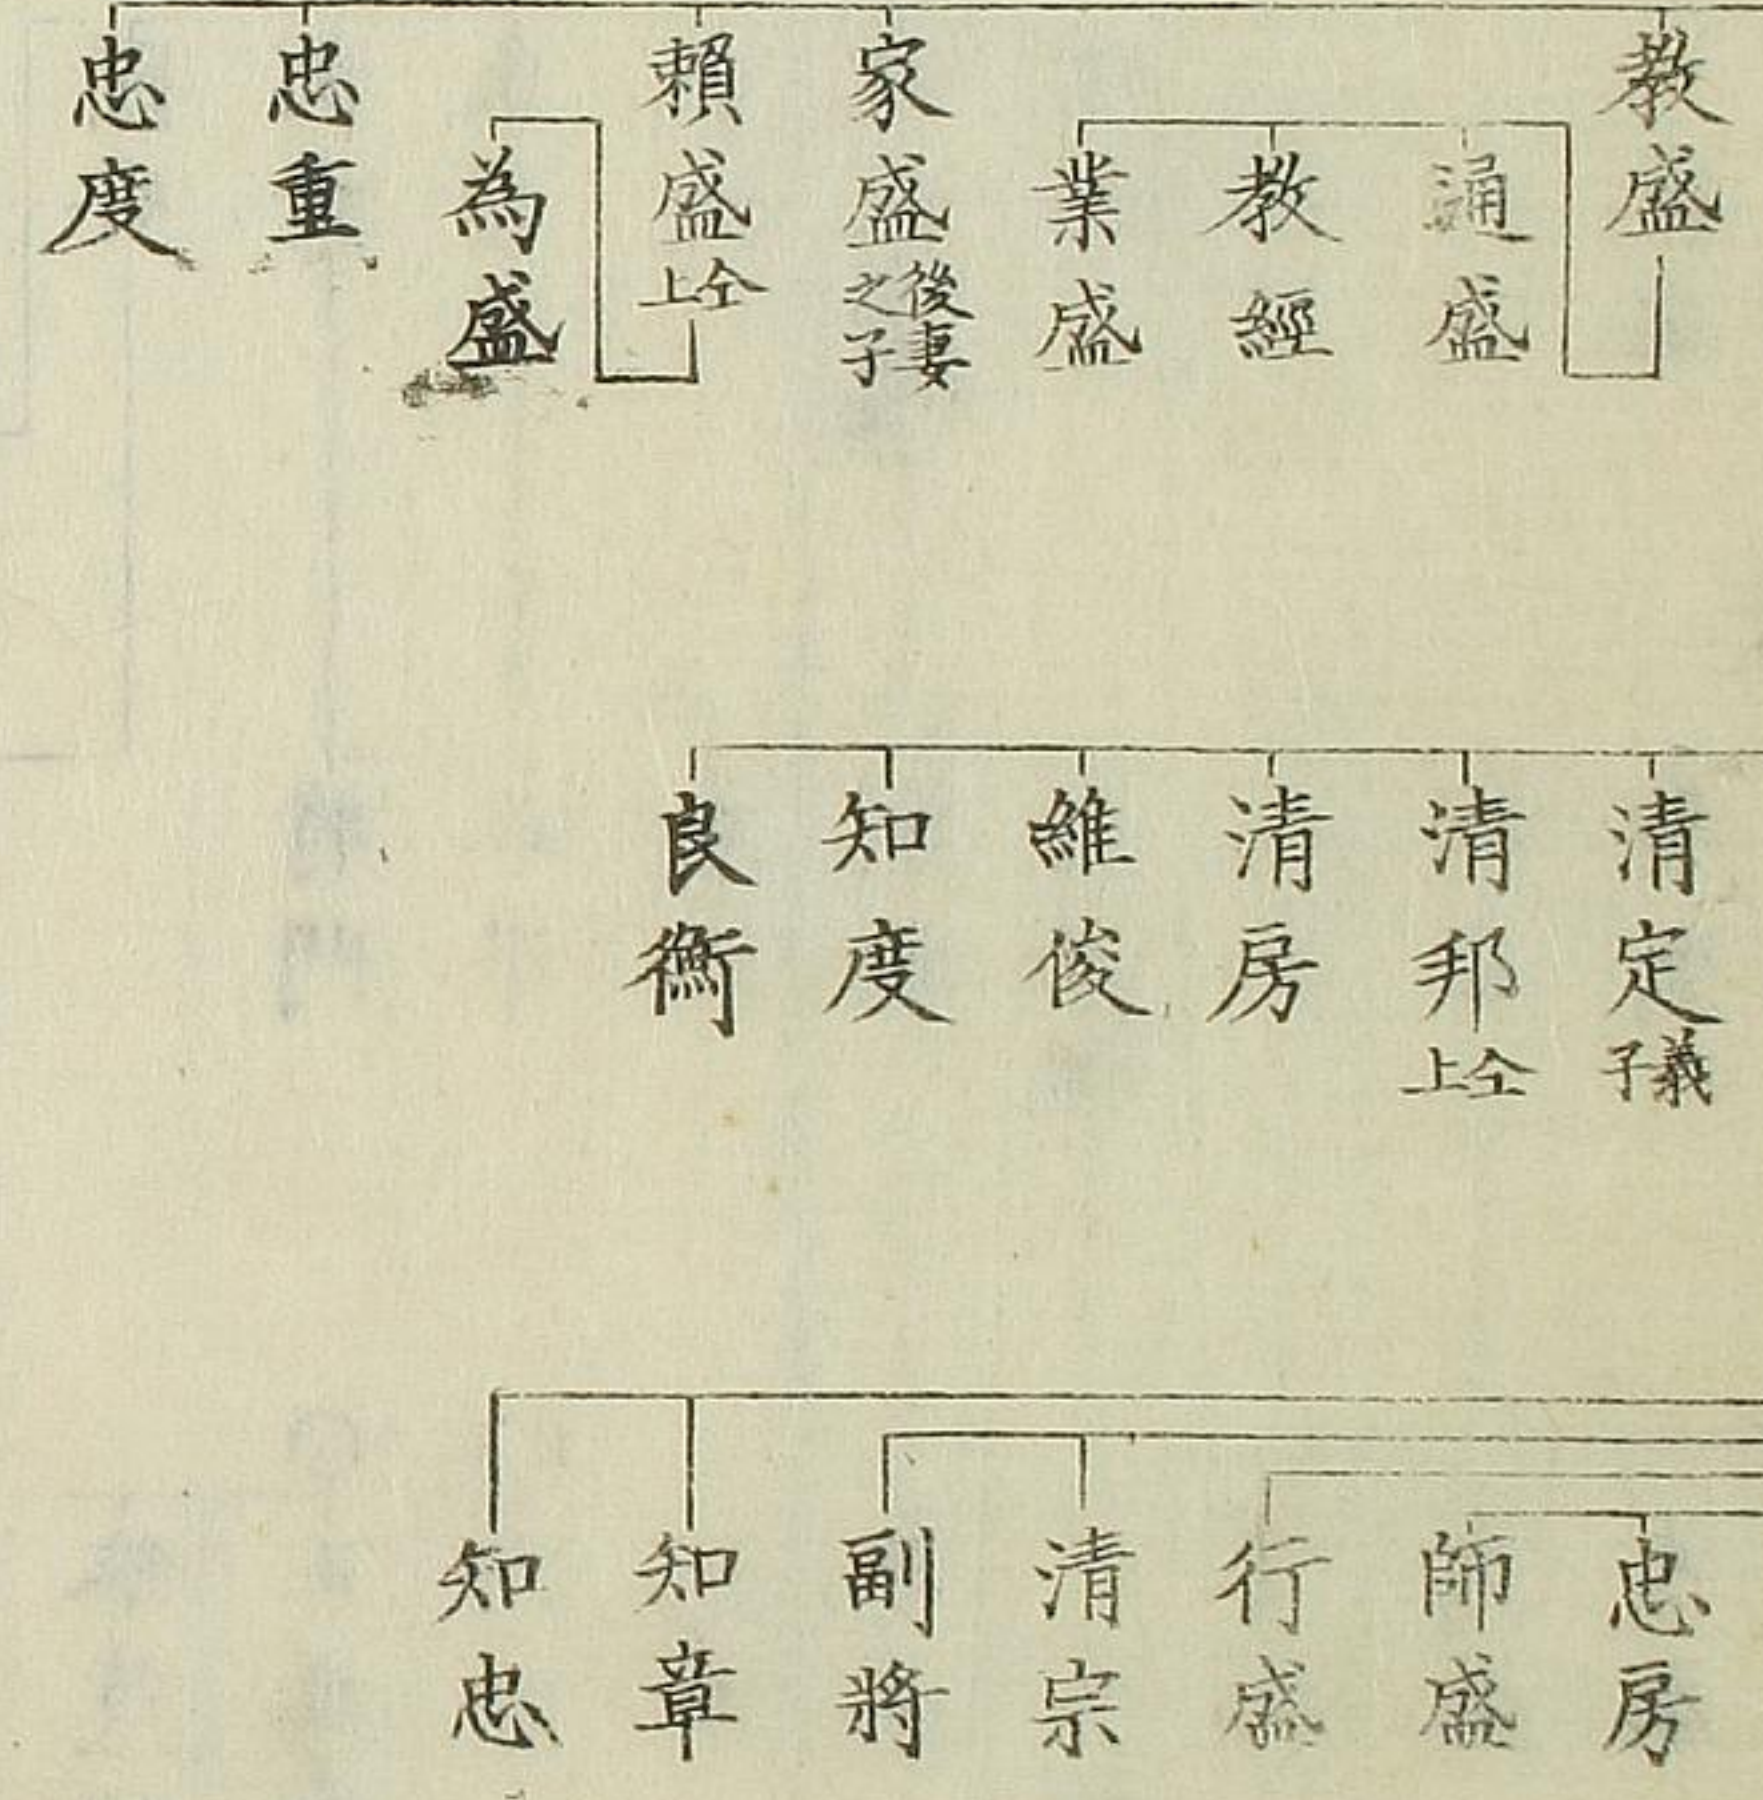 教盛
通盛
教經
業盛
家盛 後妻之子
賴盛 仝上
為盛
忠重
忠度
清定 義子
清邦 仝上
清房
維俊
知度
良衡
忠房
師盛
行盛
清宗
副將
知章
知忠